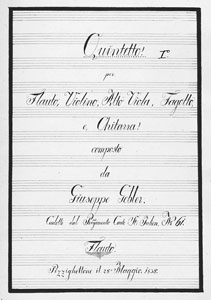 Quintetto! I°
per
Flauto, Violino, Alto Viola, Fagotto
e, Chitarra!
composto
da
Giuseppe
Cadetto del Reggimento Conte N° 61.
Flauto.
Pizzighettone il 28 Maggio, 1838